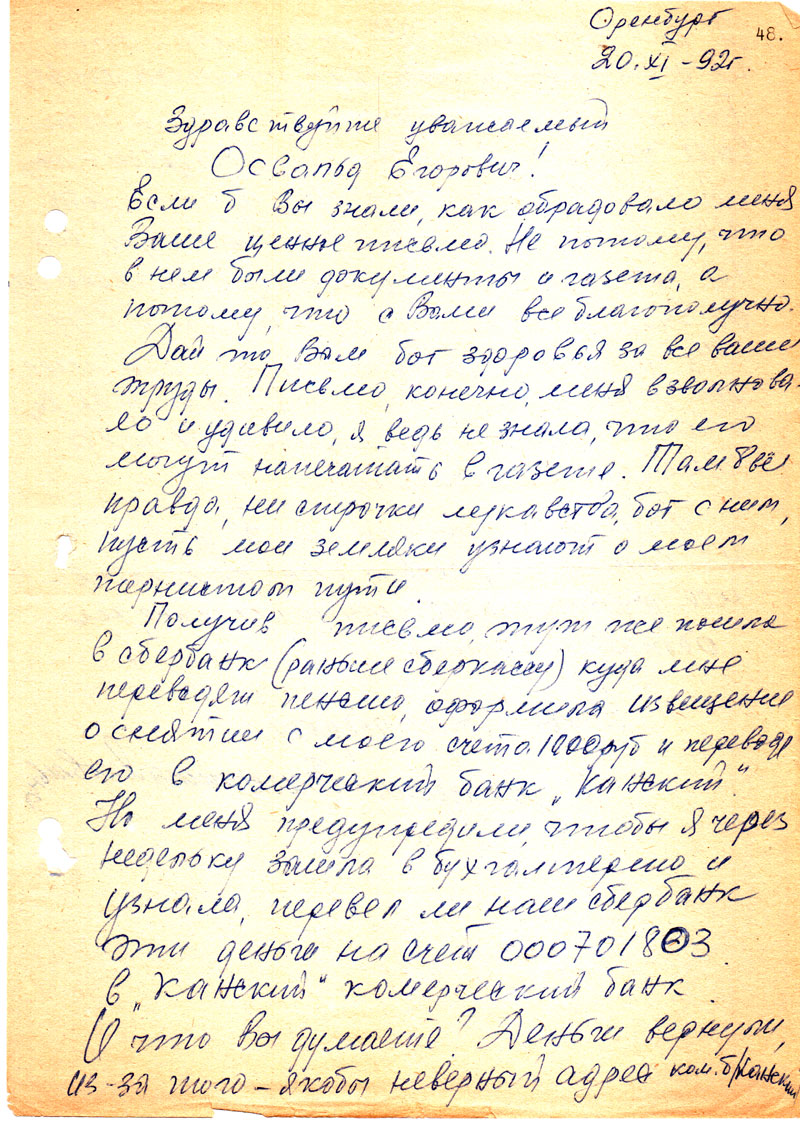 Оренбург
48.
20.XI-92г.
Здравствуйте уважаемый
Освальд Егорович!
Если б Вы знали, как обрадовало меня
Ваше ценное письмо. Не потому, что
в нем были документы и газета, а
потому, что с Вами все благополучно.
Дай то Вам бог здоровья за все ваши
труды. Письмо, конечно, меня взволнова-
ло и удивило, я ведь не знала, что его
могут напечатать в газете. Там всё
правда, ни строчки лукавства, бог с ним,
пусть мои земляки узнают о моем
тернистом пути.
Получив письмо, тут же пошла
в сбербанк (раньше сберкассу) куда мне
переводят пенсию, оформила извещение
о снятии с моего счета 1000руб и перевода
его в комерческий банк „Канский".
Но меня предупредили, чтобы я через
недельку зашла в бухгалтерию и
узнала, перевел ли наш сбербанк
эти деньги на счет 000701803
в „Канский" комерческий банк.
И что Вы думаете? Деньги вернули,
из-за того – якобы неверный адрес ком.б/Канский